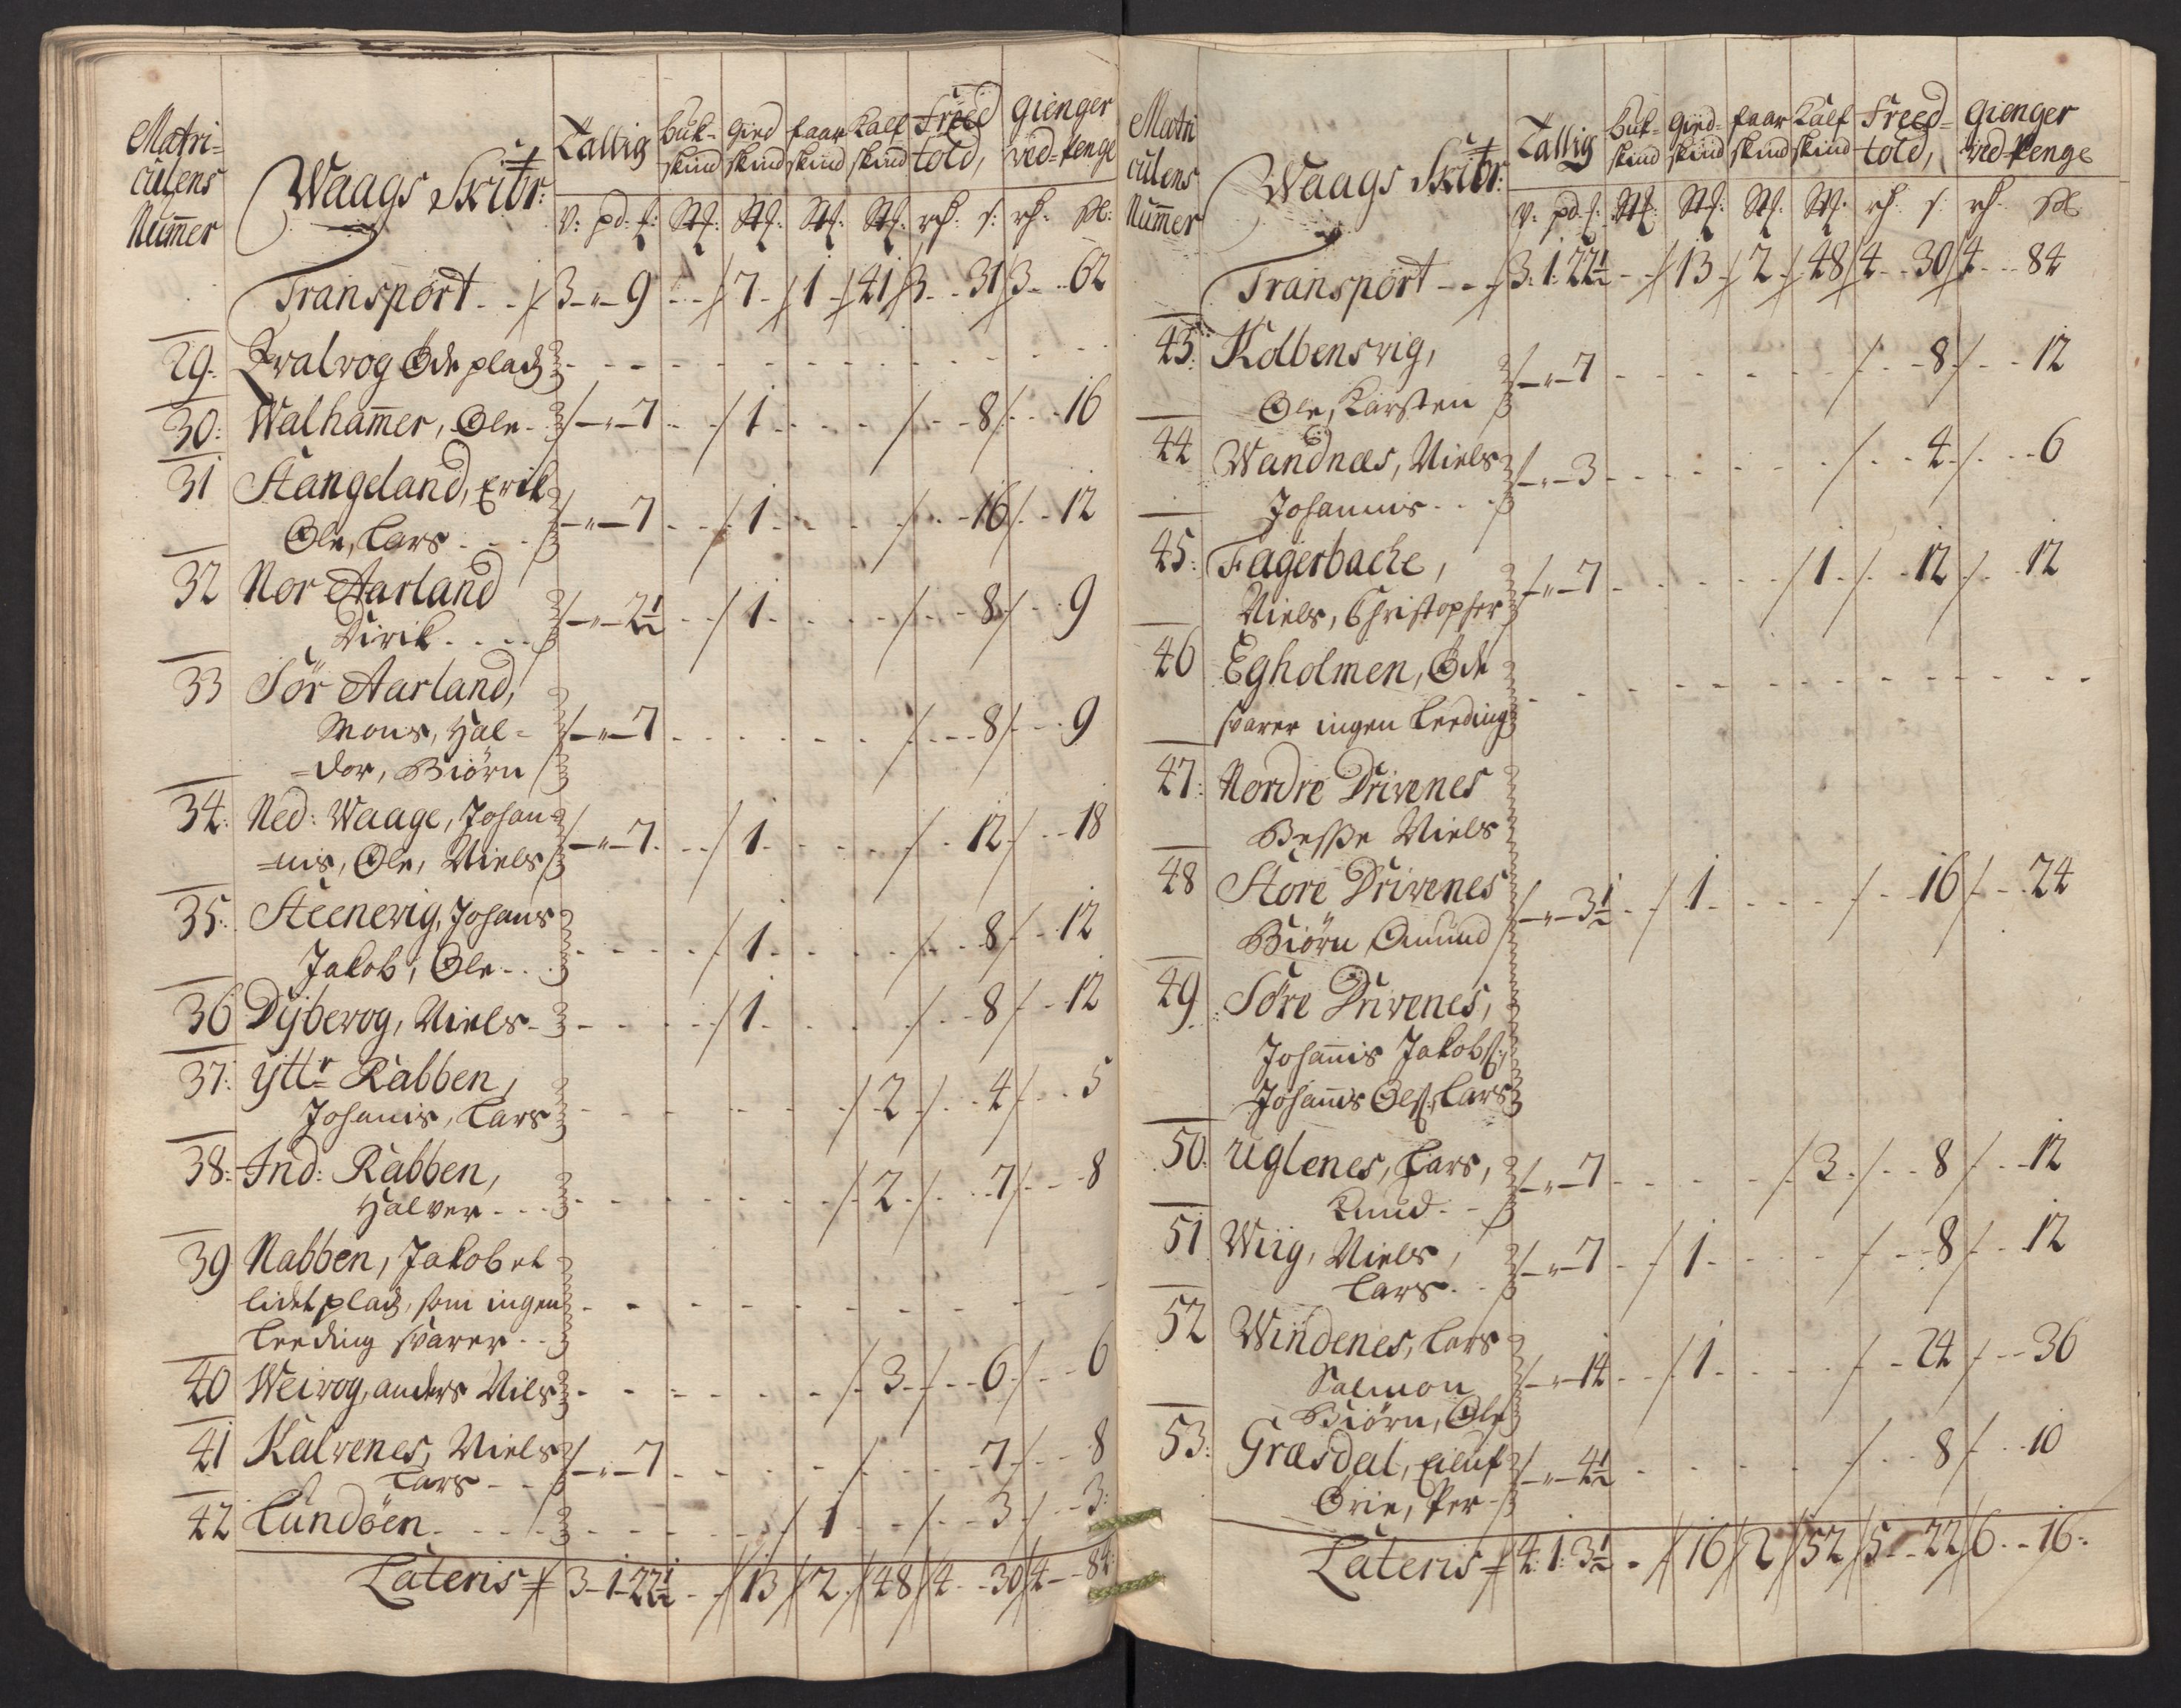 Matri=
culens
Num̃er
Waags Skibr:
Tallig
Buk=skind
Gied skind
faar skind
Kalf skind
Freed told,
Gienger ved=Penge
V: pd: ℔: St: St: St: St: rd: s: rd: s:
Transport - - 3 - " - 9 - - 7 - 1 - 41 3 - - 31 3 - - 62
29. Qvalvog Öde plads
30: Walham̃er, Ole - - " - 7 - - 1 - - - - 8 - - 16
31 Stangeland, Erik
Ole, Lars - - - - " - 7 - - 1 - - - - 16 - - 12
32 Nor Aarland
Dirik - - - - - " - 2½ - - 1 - - - - 8 - - 9
33 Sör Aarland,
Mons, Hal=
=dor, Biörn - " - 7 - - - - - 8 - - 9
34: Ned: Waage, Johan=
=nis, Ole, Niels - " - 7 - - 1 - - - - 12 - - 18
35: Steenevig, Johans
Jakob, Ole - - - - - 1 - - - - 8 - - 12
36 Dÿbevog, Niels - - - - 1 - - - - 8 - - 12
37: Ytt^r Rabben,
Johanis, Lars - - - - - 2 - - 4 - - 5
38: Ind: Rabben,
Halver - - - - - - - 2 - - 7 - - 8
39 Nabben, Jakob et
lidet plads, som ingen
Leeding svarer - -
40 Weivog, anders Nils - - - - - 3 - - 6 - - 6
41 Kalvenes, Niels
Lars - - - " - 7 - - - - - 7 - - 8
42 Lundöen - - - - - - - 1 - - 3 - - 3:
Lateris 3 - 1 - 22½ - - 13 2 48 4 - - 30 4 - - 84:
Matri
culens
Num̃er
Waags Skibr:
Tallig
Buk=skind
Gied=skind
faar skind
Kalf skind
Freed=told,
Gienger ved=Penge
V: pd: ℔: St: St: St: St: rd: s: rd: s:
Transport - - - 3. 1. 22½ - - 13 2 48 4 - - 30 4 - - 84
43: Kolbensvig,
Ole, Karsten - " - 7 - - - - - 8 - - 12
44 Wandnæs, Niels
Johannis - - - " - 3 - - - - - 4 - - 6
45: Fagerbache,
Niels, Christopher - " - 7 - - - - 1 - - 12 - - 12
46 Egholmen, Öde
svarer ingen Leeding
47: Nordre Drivenes
Besse Niels
48 Store Drivenes
Biörn Omund - " - 3½ - - 1 - - - - 16 - - 24
49 Söre Drivenes,
Johañis Jakobs:
Johañis Ols: Lars
50: Uglenes, Lars,
Knud - - - " - 7 - - - - 3 - - 8 - - 12
51 Wiig, Niels,
Lars - - - " - 7 - - 1 - - - - 8 - - 12
52 Windenes, Lars
Salmon
Biörn, Ole - " - 14 - - 1 - - - - 24 - - 36
53: Græsdal, Eiluf
Örie, Per - " - 4½ - - - - - 8 - - 10
Lateris 4: 1: 3½ - 16 2 52 5 - - 22 6 - - 16: